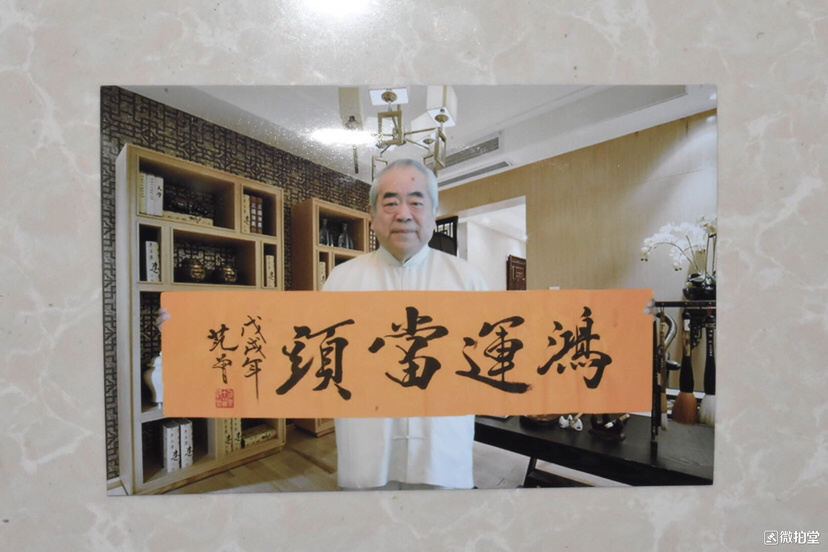 鴻運當頭
戊戌年
微拍堂